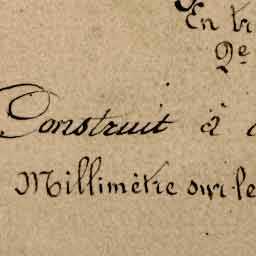 En
2e
Construit à
Millimètre sur le